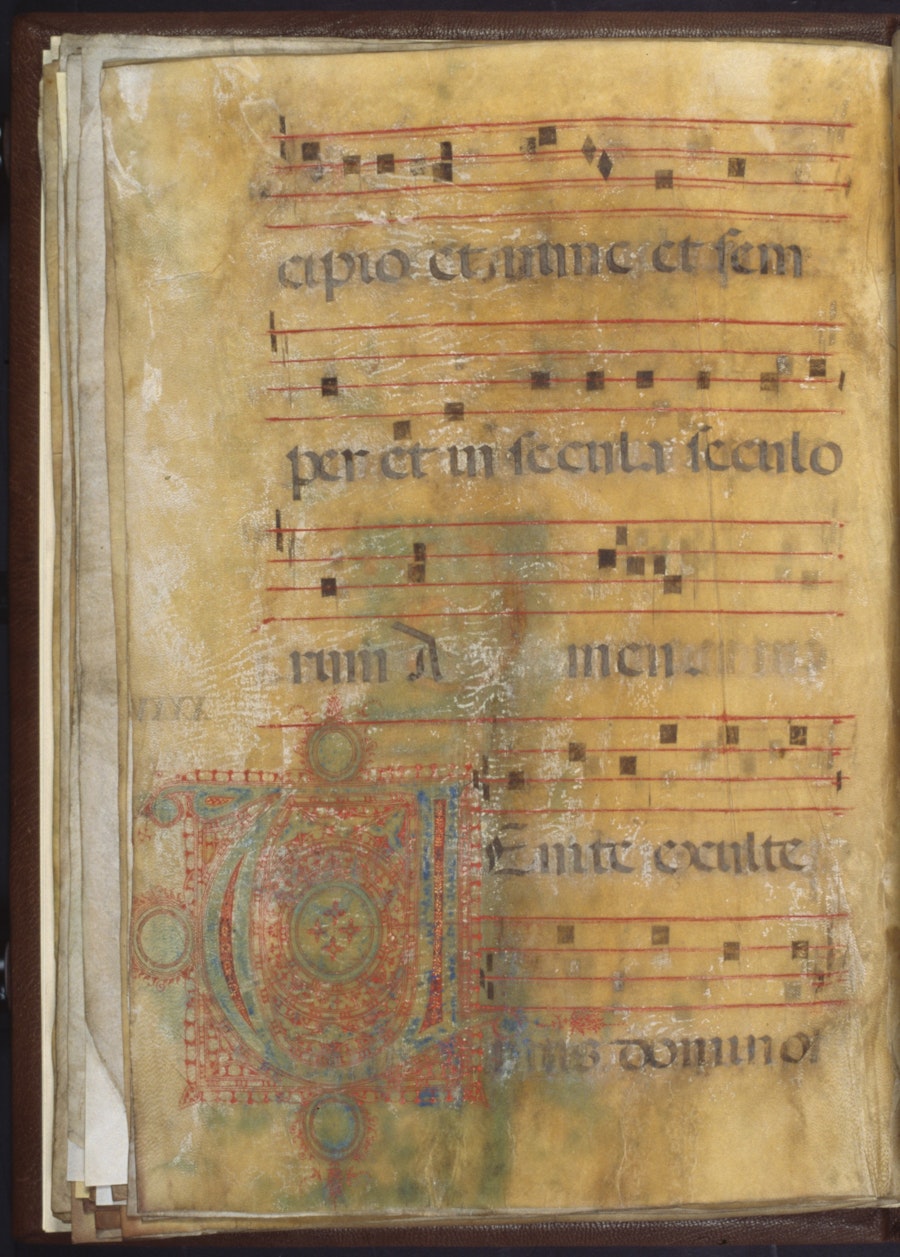 cipio et nunc et sem
per et in secula seculo
rum A men
VEnite exulte
mus domino